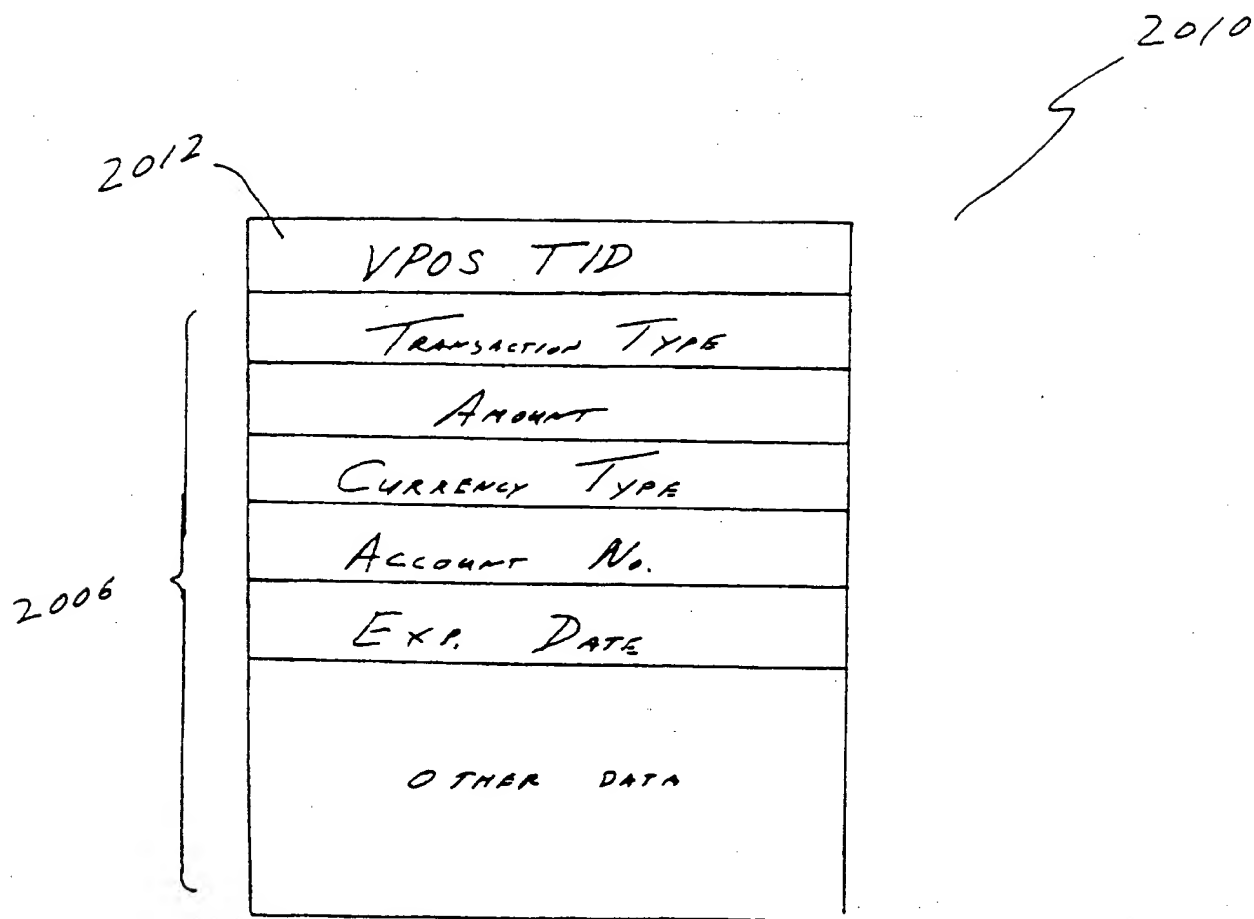 2010
2012
VPOS TID
TRANSACTION TYPE
AMOUNT
CURRENCY TYPE
ACCOUNT NO.
2006
EXP. DATE
OTHER DATA